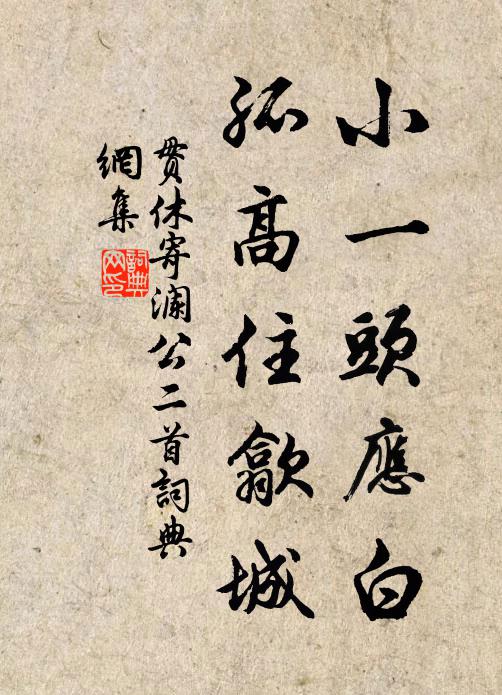 小一頭應白
孤高住歙城
貫休寄澜公二首詞典
網集
詞典
网印